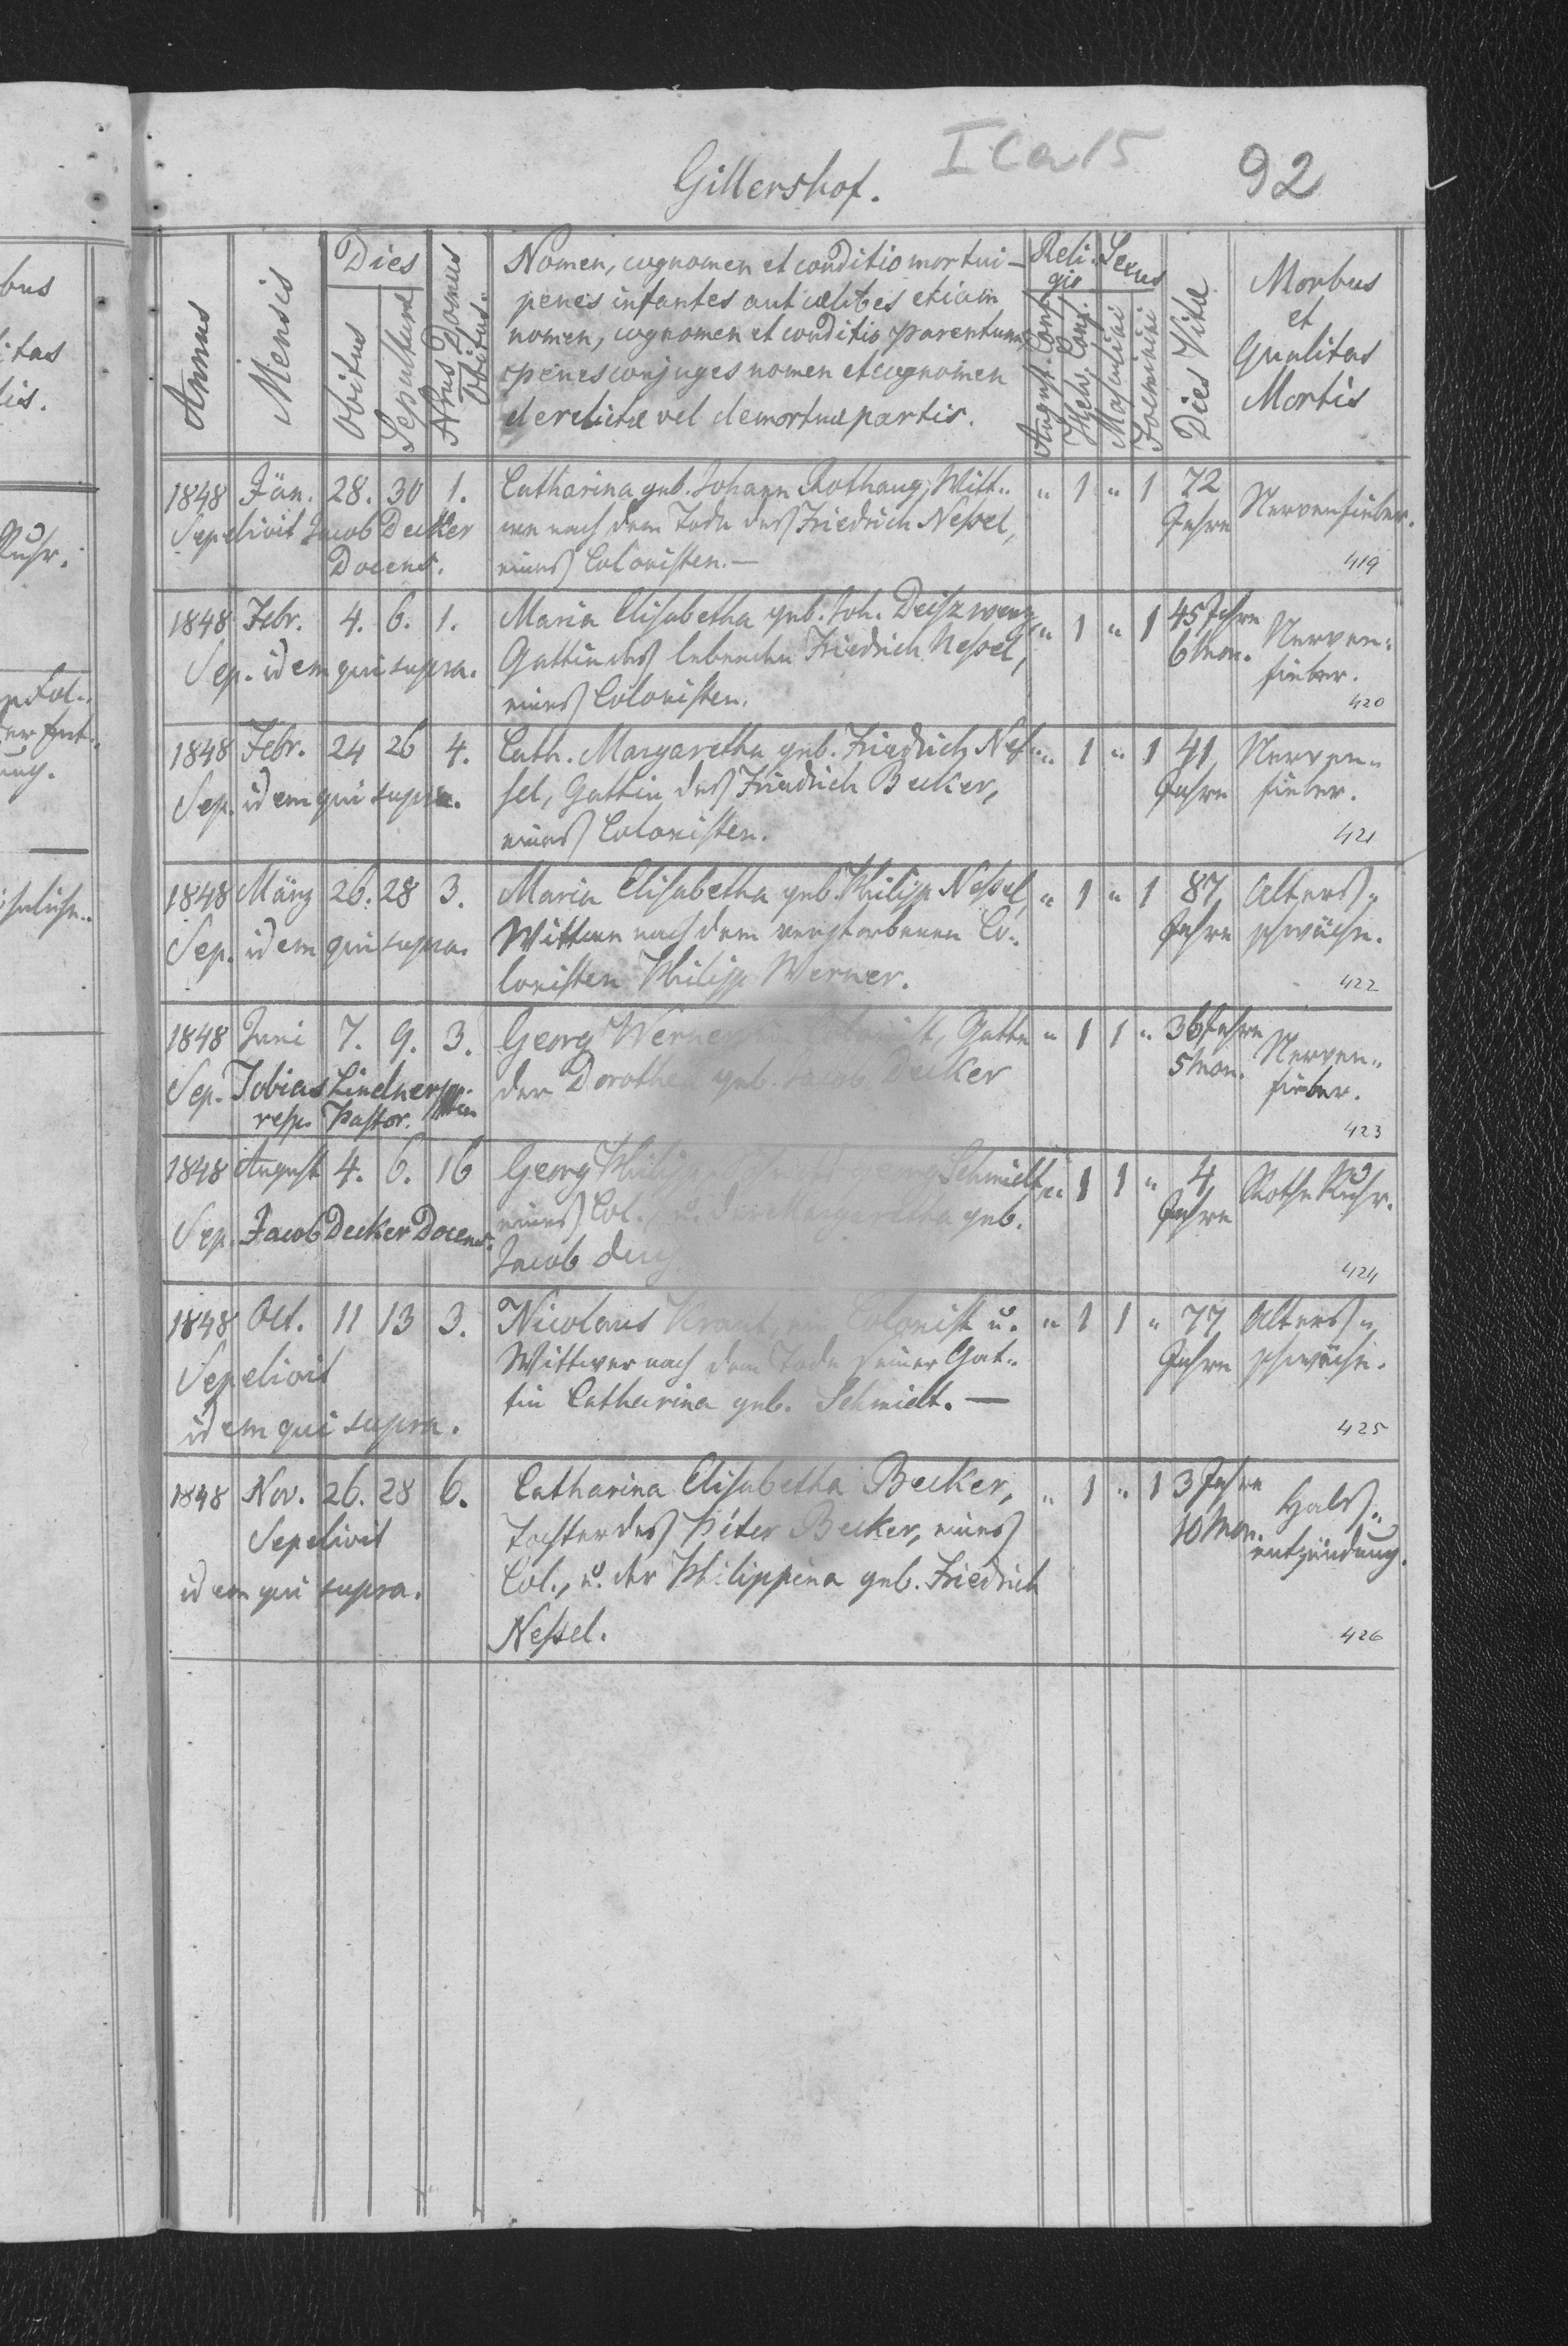 Gillershof.
I Ca 15
92
Annus
Mensis
Dies
Obitus
Sepulturæ
Nrus Domus Obitus.
Nomen, cognomen et conditio mortui –
penes infantes aut cælibes etiam
nomen, cognomen et conditio parentum,
penes conjuges nomen et cognomen
derelictæ vel demortuæ partis.
Religio
August. Conf.
Helv. Conf.
Sexus
Masculini
Foeminini
Dies Vitæ
Morbus
et
Qualitas
Mortis
1848 Jän. 28. 30 1. Catharina geb. Johann Rothaug, Witt„ „ 1 „ 1 72 Nervenfieber.
Sepelivit Jacob Decker we nach dem Tode des Friedrich Nessel, Jahre
Docens. eines Colonisten. — 419
1848 Febr. 4. 6. 1. Maria Elisabetha geb. Joh. „ 1 „ 1 45 Jahre Nerven„
Sep. idem qui supra. Gattin des lebenden Friedrich Nessel, 6 Mon. fieber.
eines Colonisten. 420
1848 Febr. 24 26 4. Cath. Margaretha geb. Friedrich Nes„ „ 1 „ 1 41 Nerven„
Sep. idem qui supra. sel, Gattin des Friedrich Becker, Jahre fieber.
eines Colonisten. 421
1848 März 26. 28 3. Maria Elisabetha geb. Philipp Nessel, „ 1 „ 1 87 Alters„
Sep. idem qui supra. Wittwe nach dem verstorbenen Co„ Jahre schwäche.
lonisten Philipp Werner. 422
1848 Juni 7. 9. 3. Georg Werner, ein Colonist, Gatte „ 1 1 „ 36 Jahre Nerven„
Sep. Tobias Lindner der Dorothea geb. Jacob Decker 5 Mon. fieber.
resp. Pastor. 423
1848 August 4. 6. 16 Georg Philipp, Georg Schmidt „ 1 1 „ 4 Rothe Ruhr.
Sep. Jacob Decker Docens. eines Col., u. der Margaretha geb. Jahre
Jacob 424
1848 Oct. 11 13 3. Nicolaus Kraut, ein Colonist u. „ 1 1 „ 77 Alters„
Sepelivit Wittwer nach dem Tode seiner Gat„ Jahre schwäche.
idem qui supra. tin Catharina geb. Schmidt. — 425
1848 Nov. 26. 28 6. Catharina Elisabetha Becker, „ 1 „ 1 3 Jahre Hals„
Sepelivit Tochter des Peter Becker, eines 10 Mon. entzündung.
idem qui supra. Col., u. der Philippina geb. Friedrich
Nessel. 426